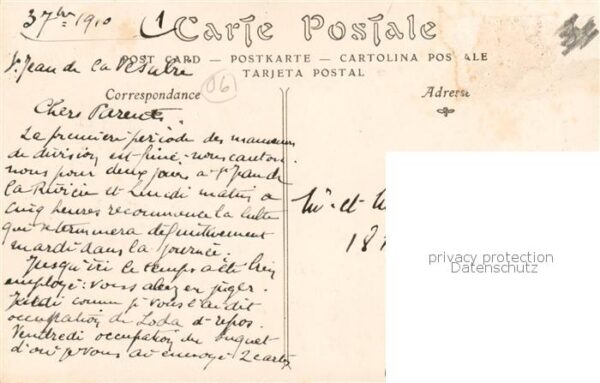 3 7bre 1910
1
Carte Postale
POST CARD — POSTKARTE — CARTOLINA POSTALE
TARJETA POSTAL
St Jean de la
06
Correspondance
Adresse
Chers Parents.
La première période des manœuvres
de division est finie. nous canton-
nous pour deux jours à St Jean de
la Rivière et Lundi matin à
cinq heures recommence la lutte
qui se terminera définitivement
mardi dans la journée.
Jusqu'ici le temps a été bien
employé. vous allez en juger.
Jeudi comme je vous l'ai dit
occupation de Loda et repos.
Vendredi occupation du
d'où je vous ai envoyé 2 cartes
Mr et
18
privacy protection
Datenschutz